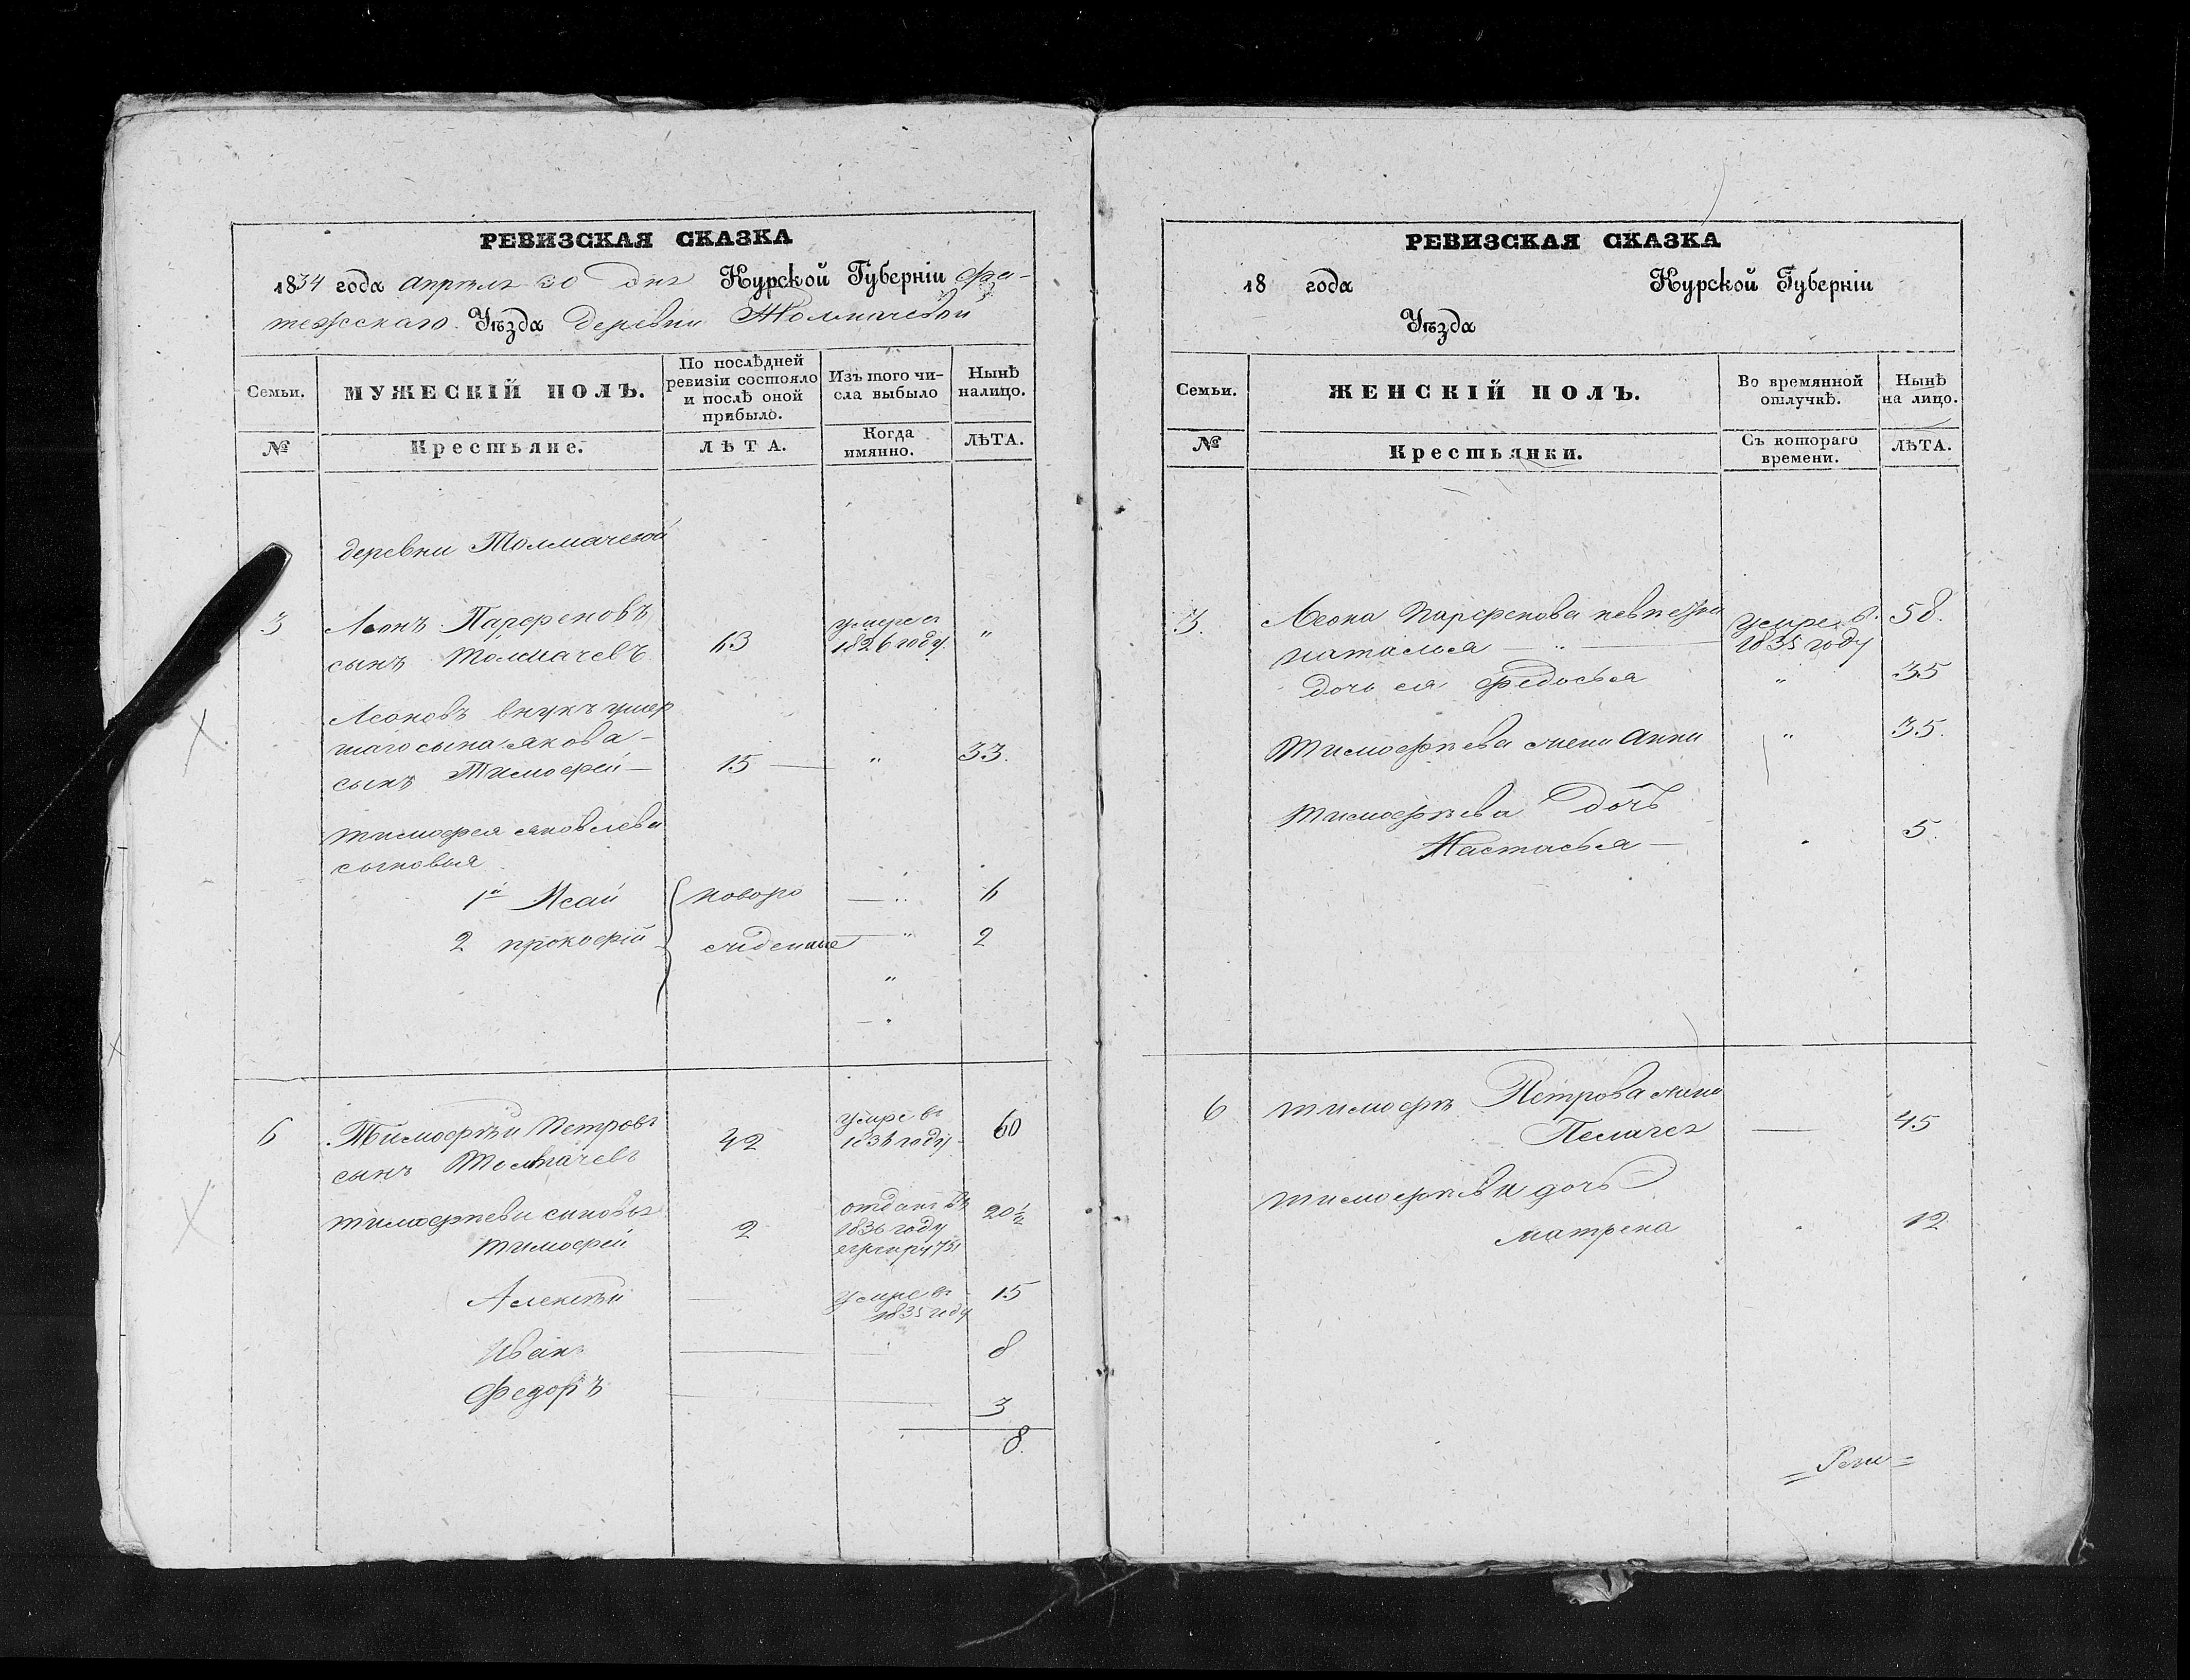 РЕВИЗСКАЯ СКАЗКА
1834 года апреля 30 дня Курской Губерніи Фа-
тежскаго Уѣзда деревни Толмачевой
Семьи.
МУЖЕСКІЙ ПОЛЪ.
По послѣдней ревизіи состояло и послѣ оной прибыло.
Изъ того чи-сла выбыло
Нынѣ налицо.
№
Крестьяне.
ЛѢТА.
Когда имянно.
ЛѢТА.
деревни Толмачевой
3 Леонъ Парфеновъ умре въ
сынъ Толмачевъ 63 1826 году "
Леоновъ внукъ умер
шаго сына якова
сынъ Тимофей 15 " 33.
тимофея яковлева
сыновья
1й Исай новоро 6
2 прокофій жденные 2
6 Тимофѣй Петровъ умре въ
сынъ Толмачевъ 42 1836 году 60
тимофеевы сыновья отданъ въ
тимофей 2 1836 году 20½
Алексѣй умре въ 15
1835 году
Иванъ 8
Федоръ 3
8.
РЕВИЗСКАЯ СКАЗКА
18 года Курской Губерніи
Уѣзда
Семьи.
ЖЕНСКІЙ ПОЛЪ.
Во времянной отлучкѣ.
Нынѣ на лицо.
№
Крестьянки.
Съ котораго времени.
ЛѢТА.
3. Леона Парфенова умре в. 58.
наталья 1835 году
дочь ея Федосья " 35
Тимофеева жена анна " 35.
тимофеева Дочь
Настасья 5.
6 тимофея Петрова жена
Пелагея 45
тимофеева дочь
матрена 12